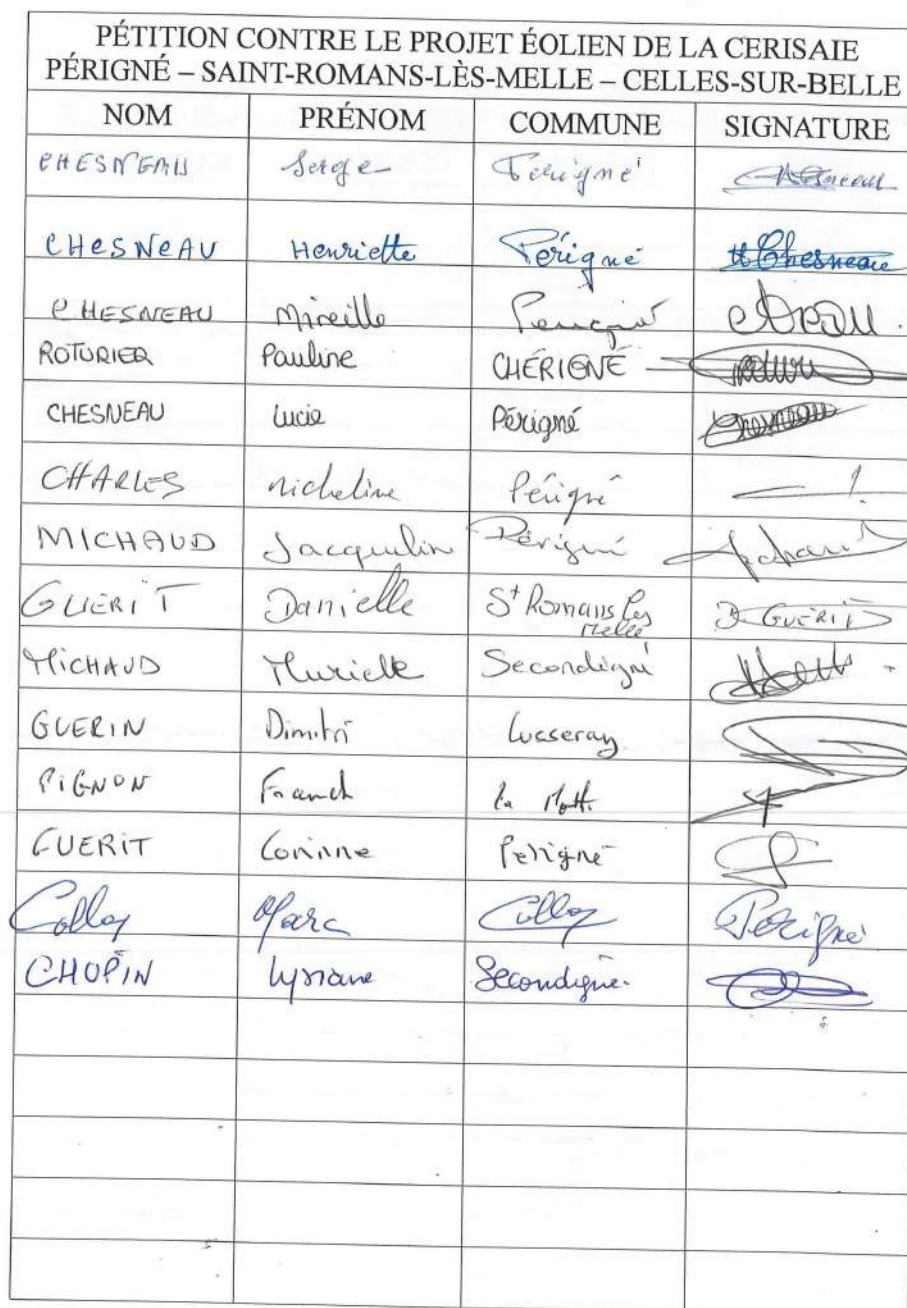 PÉTITION CONTRE LE PROJET ÉOLIEN DE LA CERISAIE
PÉRIGNÉ – SAINT-ROMANS-LÈS-MELLE – CELLES-SUR-BELLE
NOM PRÉNOM COMMUNE SIGNATURE
CHESNEAU Serge Périgné Chesneau
CHESNEAU Henriette Périgné H Chesneau
CHESNEAU Mireille Périgné
ROTURIER Pauline CHÉRIGNÉ
CHESNEAU Lucie Périgné Chesneau
CHARLES Micheline Périgné
MICHAUD Jacquelin Périgné
GUERIT Danielle St Romans les Melle D. GUERIT
MICHAUD Murielle Secondigné
GUERIN Dimitri Lusseray
PIGNON Franck la Mothe
GUERIT Corinne Périgné
Collay Marc Collay Périgné
CHOPIN Lysiane Secondigné